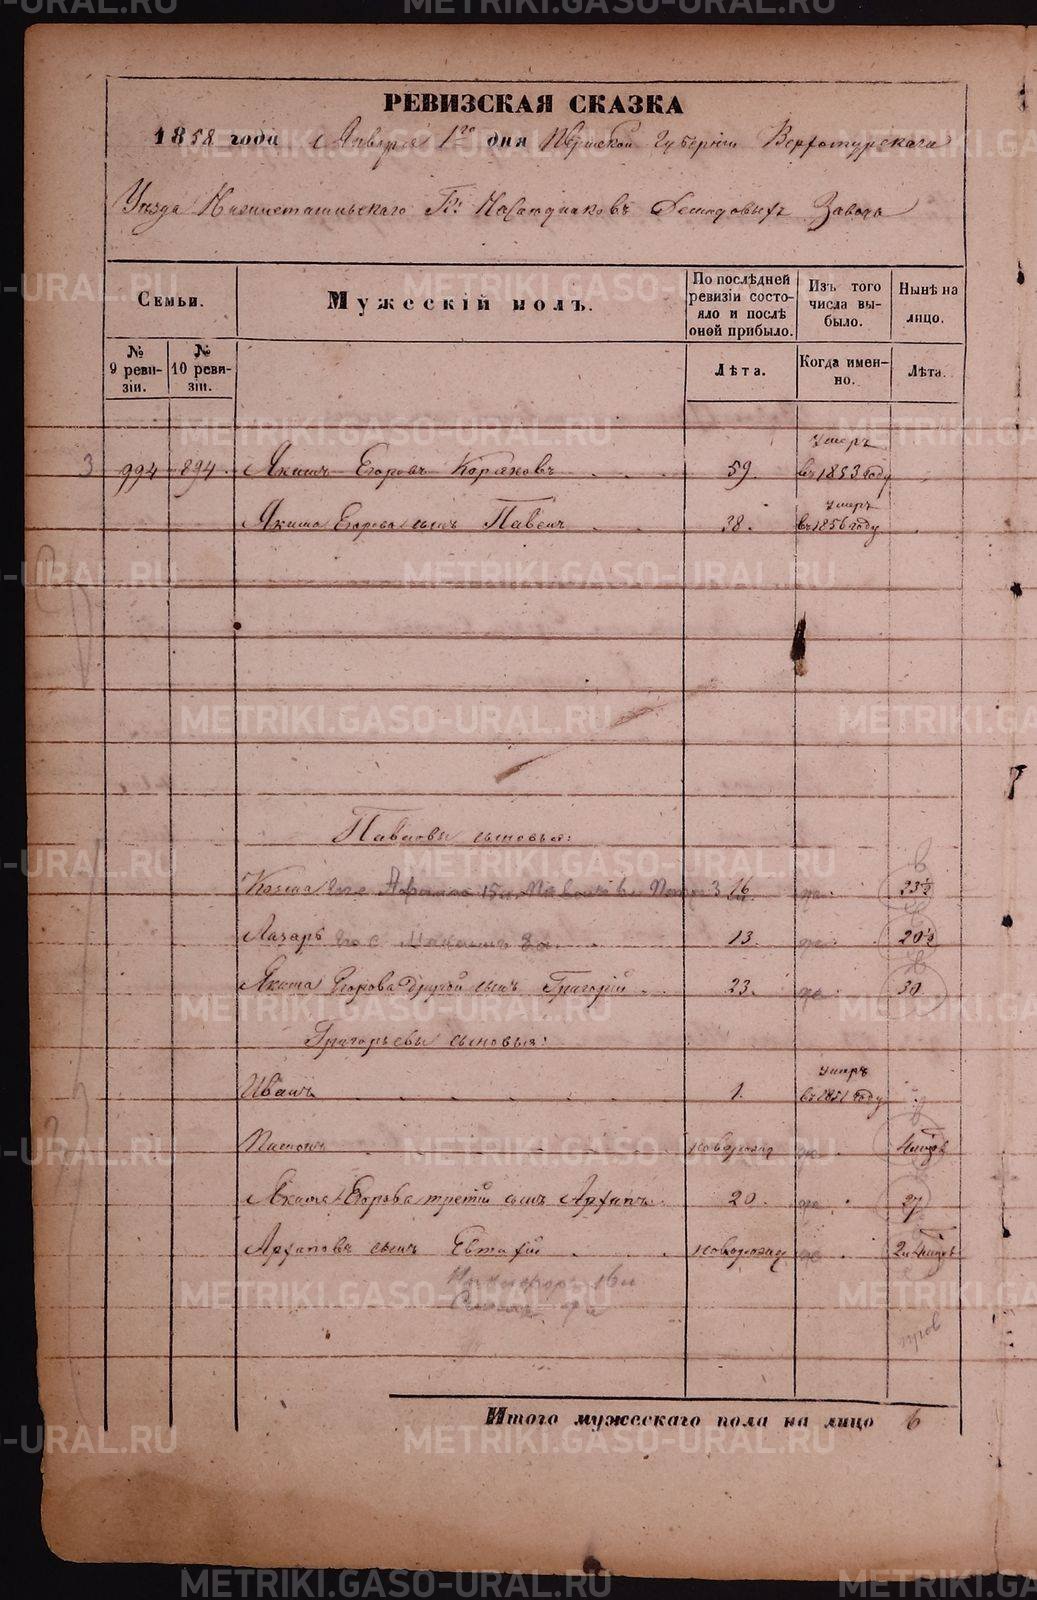 РЕВИЗСКАЯ СКАЗКА
1858 года Января 1го дня Пермской Губерніи Верхотурскаго
Уѣзда Нижнетагильскаго Гг: Наслѣдниковъ Демидовыхъ Завода
Семьи.
Мужескій полъ.
По послѣдней ревизіи состояло и послѣ оной прибыло.
Изъ того числа выбыло.
Нынѣ на лицо.
№ 9 ревизіи.
№ 10 ревизіи.
Лѣта.
Когда именно.
Лѣта.
3 994 894 Якимъ Егоровъ Коряковъ 59. умеръ въ 1853 году
Якима Егорова сынъ Павелъ 38. умеръ въ 1856 году
Павловы сыновья:
Козьма его 15 3 16 23½
Лазарь его с 13. 20½
Якима Егорова другой сынъ Григорій 23. 30
Григорьевы сыновья:
Иванъ 1. умеръ въ 1851 году
новорожд
Якима Егорова третій сынъ Архипъ 20. 27
Архиповъ сынъ Евтифій новорожд
Никифоръ
Итого мужескаго пола на лицо 6
METRIKI.GASO-URAL.RU